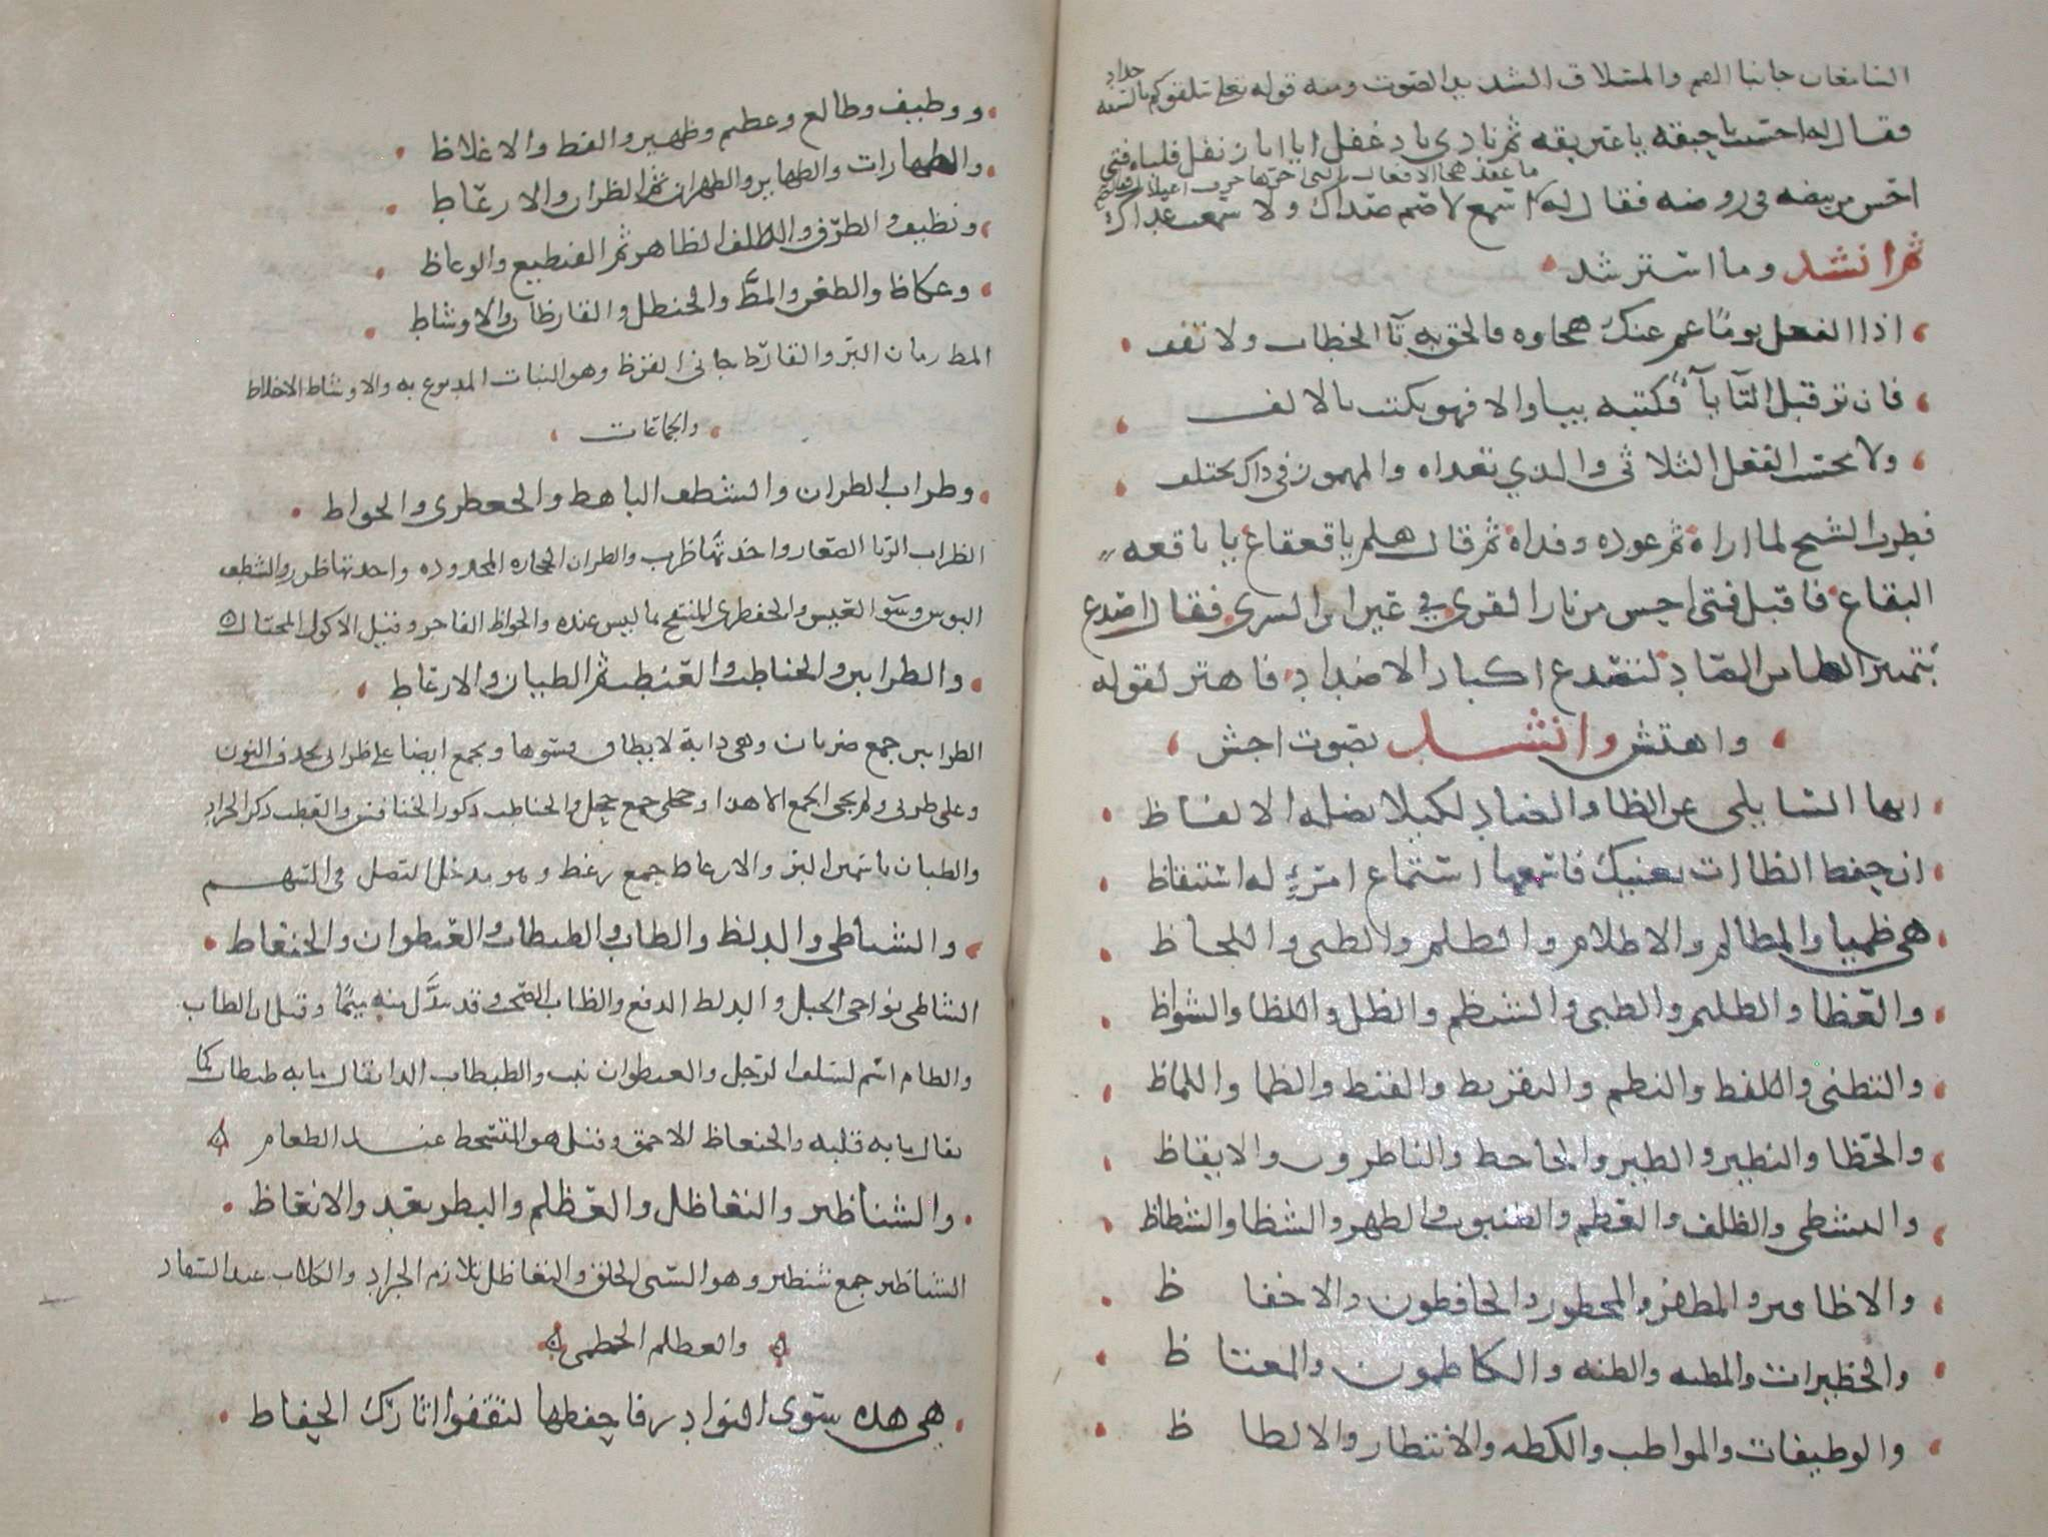 الشدقان جانبا الفم والمسلاق الشديد الصوت ومنه قوله تعلى سلقوكم بالسنة
حداد
فقال له احسنت يا حبقه يا عين بقه ثم نادى يا دغفل ايا ابا زنفل فلباه فتى
ما عقد هجا الافعال التى اخرها حرف اعتلال
احسن من بيضه في روضه فقال له اسمع لا صم صداك ولا سمعت عداك
ثم انشد وما استرشد
اذا الفعل يوما غم عنك هجاوه فالحق به تآ الخطاب ولا تقف
فان تر قبل التآ يآ فكتبه بيا والا فهو يكتب بالالف
ولا تحسب الفعل الثلاثى والذي تعداه والمهموز في ذاك يختلف
فطرب الشيخ لما اداه ثم عوده وفداه ثم قال هلم يا قعقاع يا باقعه
البقاع فاقبل فتى احسن من نار القرى في عين ابن السرى فقال اصدع
بتمييز الظا من الضاد لتصدع اكباد الاضداد فاهتز لقوله
واهتش وانشد بصوت اجش
ايها السايلى عن الظا والضاد لكيلا تضله الالفاظ
ان حفظ الظاات يغنيك فاسمعها استماع امرئ له استيقاظ
هى ظميا والمظالم والاظلام والظلم والظبى واللحاظ
والعظا والظليم والظبى والشيظم والظل واللظا والشواظ
والتظنى واللفظ والنظم والتقريظ والقيظ والظما واللماظ
والحظا والنظير والظير والجاحظ والناظرون والايقاظ
والتشظى والظلف والعظم والظنبوب والظهر والشظا والشظاظ
والاظافير والمظفر والمحظور والحافظون والاحفاظ
والحظيرات والمظنه والظنه والكاظمون والمغتاظ
والوظيفات والمواظب والكظه والانتظار والالظاظ
ووظيف وظالع وعظيم وظهير والفظ والاغلاظ
ونظيف والظرف والظلف الظاهر ثم الفظيع والوعاظ
وعكاظ والظعن والمظ والحنظل والقارظان والاوشاظ
المظ رمان البر والقارظ جانى القرظ وهو النبات المدبوغ به والاوشاظ الاخلاط
والجماعات
وظراب الظران والشظف الباهظ والجعظرى والجواظ
الظراب الربا الصغار واحدتها ظرب والظران الحجاره المحدوده واحدتها ظرر والشظف
البوس وسو العيش والجعظرى المنتفخ بما ليس عنده والجواظ الفاخر وقيل الاكول المحتال
والظرابين والحناظب والعنظب ثم الظيان والارعاظ
الظرابين جمع ظربان وهى دابة لا يطاق فسوها ويجمع ايضا على ظرابى بحذف النون
وعلى ظربى ولم يجى الجمع الا هذا وحجلى جمع حجل والحناظب ذكور الخنافس والعنظب ذكر الجراد
والظيان ياسمين البر والارعاظ جمع رعظ وهو مدخل النصل فى السهم
والشناظى والدلظ والظاب والظبظاب والعنظوان والجنعاظ
الشناظى نواحى الجبل والدلظ الدفع والظاب الصخب وقد تبدل منه ميما وقيل ان الظاب
والظام اسم لسلف الرجل والعنظوان نبت والظبظاب الدا يقال ما به ظبظاب كما
يقال ما به قلبه والجنعاظ الاحمق وقيل هو المتسخط عند الطعام
والشناظير والتعاظل والعظلم والبظر بعد والانعاظ
الشناظير جمع شنظير وهو السى الخلق والتعاظل تلازم الجراد والكلاب عند السفاد
والعظلم الخطمى
هى هذه سوى النوادر فاحفظها لتقفوا اثارك الحفاظ